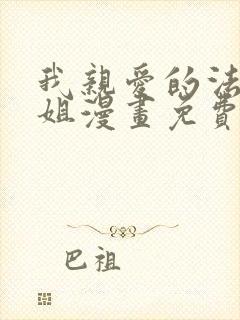 我親愛的法
姐漫畫免費
巴祖